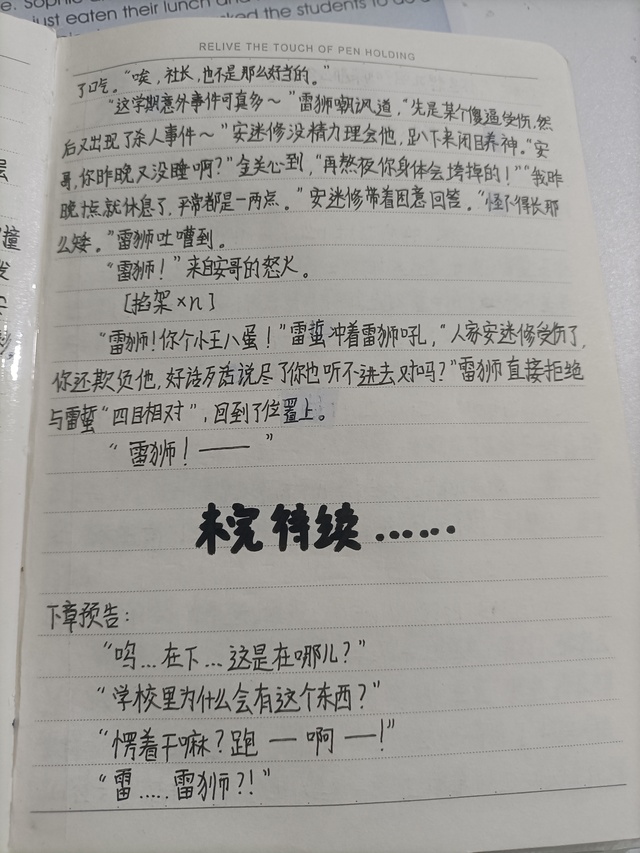 just eaten their lunch and
ked the students to do a
RELIVE THE TOUCH OF PEN HOLDING
了口气。“唉，社长，也不是那么好当的。”
“这学期意外事件可真多～”雷狮嘲讽道，“先是某个傻逼受伤，然
后又出现了杀人事件～”安迷修没精力理会他，趴下来闭目养神。“安
哥，你昨晚又没睡啊？”金关心到，“再熬夜你身体会垮掉的！”“我昨
晚十点就休息了，平常都是一两点。”安迷修带着困意回答。“怪不得长那
么矮。”雷狮吐嘈到。
“雷狮！”来自安哥的怒火。
[掐架×n]
“雷狮！你个小王八蛋！”雷蜇冲着雷狮吼，“人家安迷修受伤了，
你还欺负他，好话歹话说尽了你也听不进去对吗？”雷狮直接拒绝
与雷蜇“四目相对”，回到了位置上。
“雷狮！——”
未完待续……
下章预告：
“呜…在下…这是在哪儿？”
“学校里为什么会有这个东西？”
“愣着干嘛？跑—啊—！”
“雷……雷狮？！”